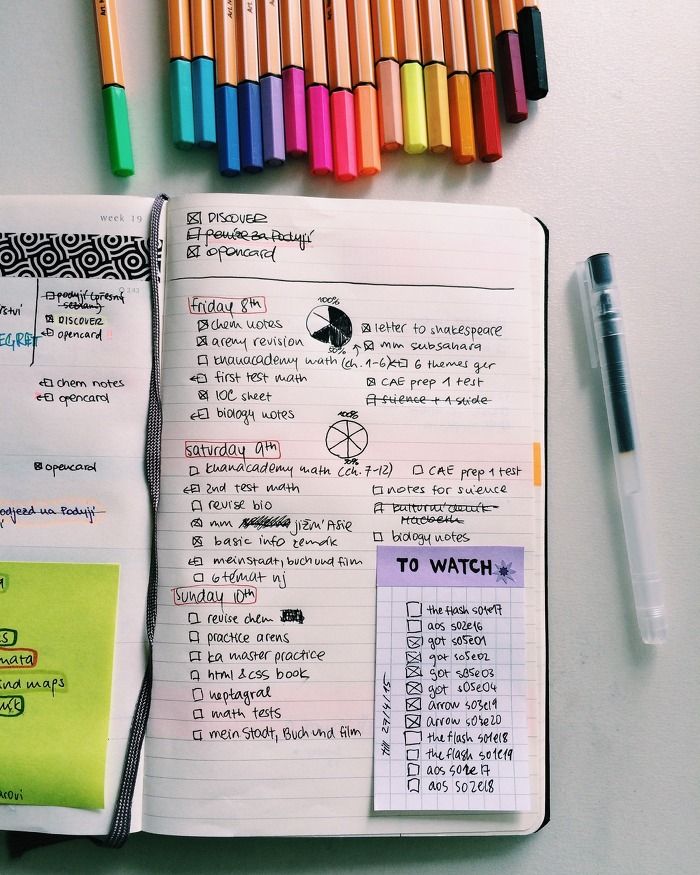 week 19
podyjí (přesný seznam)
DISCOVER
opencard
chem notes
opencard
opencard
odjezd na Podyjí
ind maps
DISCOVER
peníze za Podyjí
opencard
friday 8th
100%
50%
chem notes
letter to shakespeare
areny revision
mm subsahara
khanacademy math (ch. 1-6)
6 themes ger
first test math
CAE prep 1 test
IOC sheet
science + 1 slide
biology notes
saturday 9th
100%
50%
khanacademy math (ch. 7-12)
CAE prep 1 test
2nd test math
notes for science
revise bio
kulturní deník - Macbeth
mm jižní Asie
basic info zemák
biology notes
mein Stadt, buch und film
6 témat nj
sunday 10th
revise chem
practice arens
ka master practice
html & css book
heptagral
math tests
mein Stadt, Buch und film
TO WATCH
the flash s01e17
aos s02e16
got s05e01
got s05e02
got s05e03
got s05e04
arrow s03e19
arrow s03e20
the flash s01e18
the flash s01e19
aos s02e17
aos s02e18